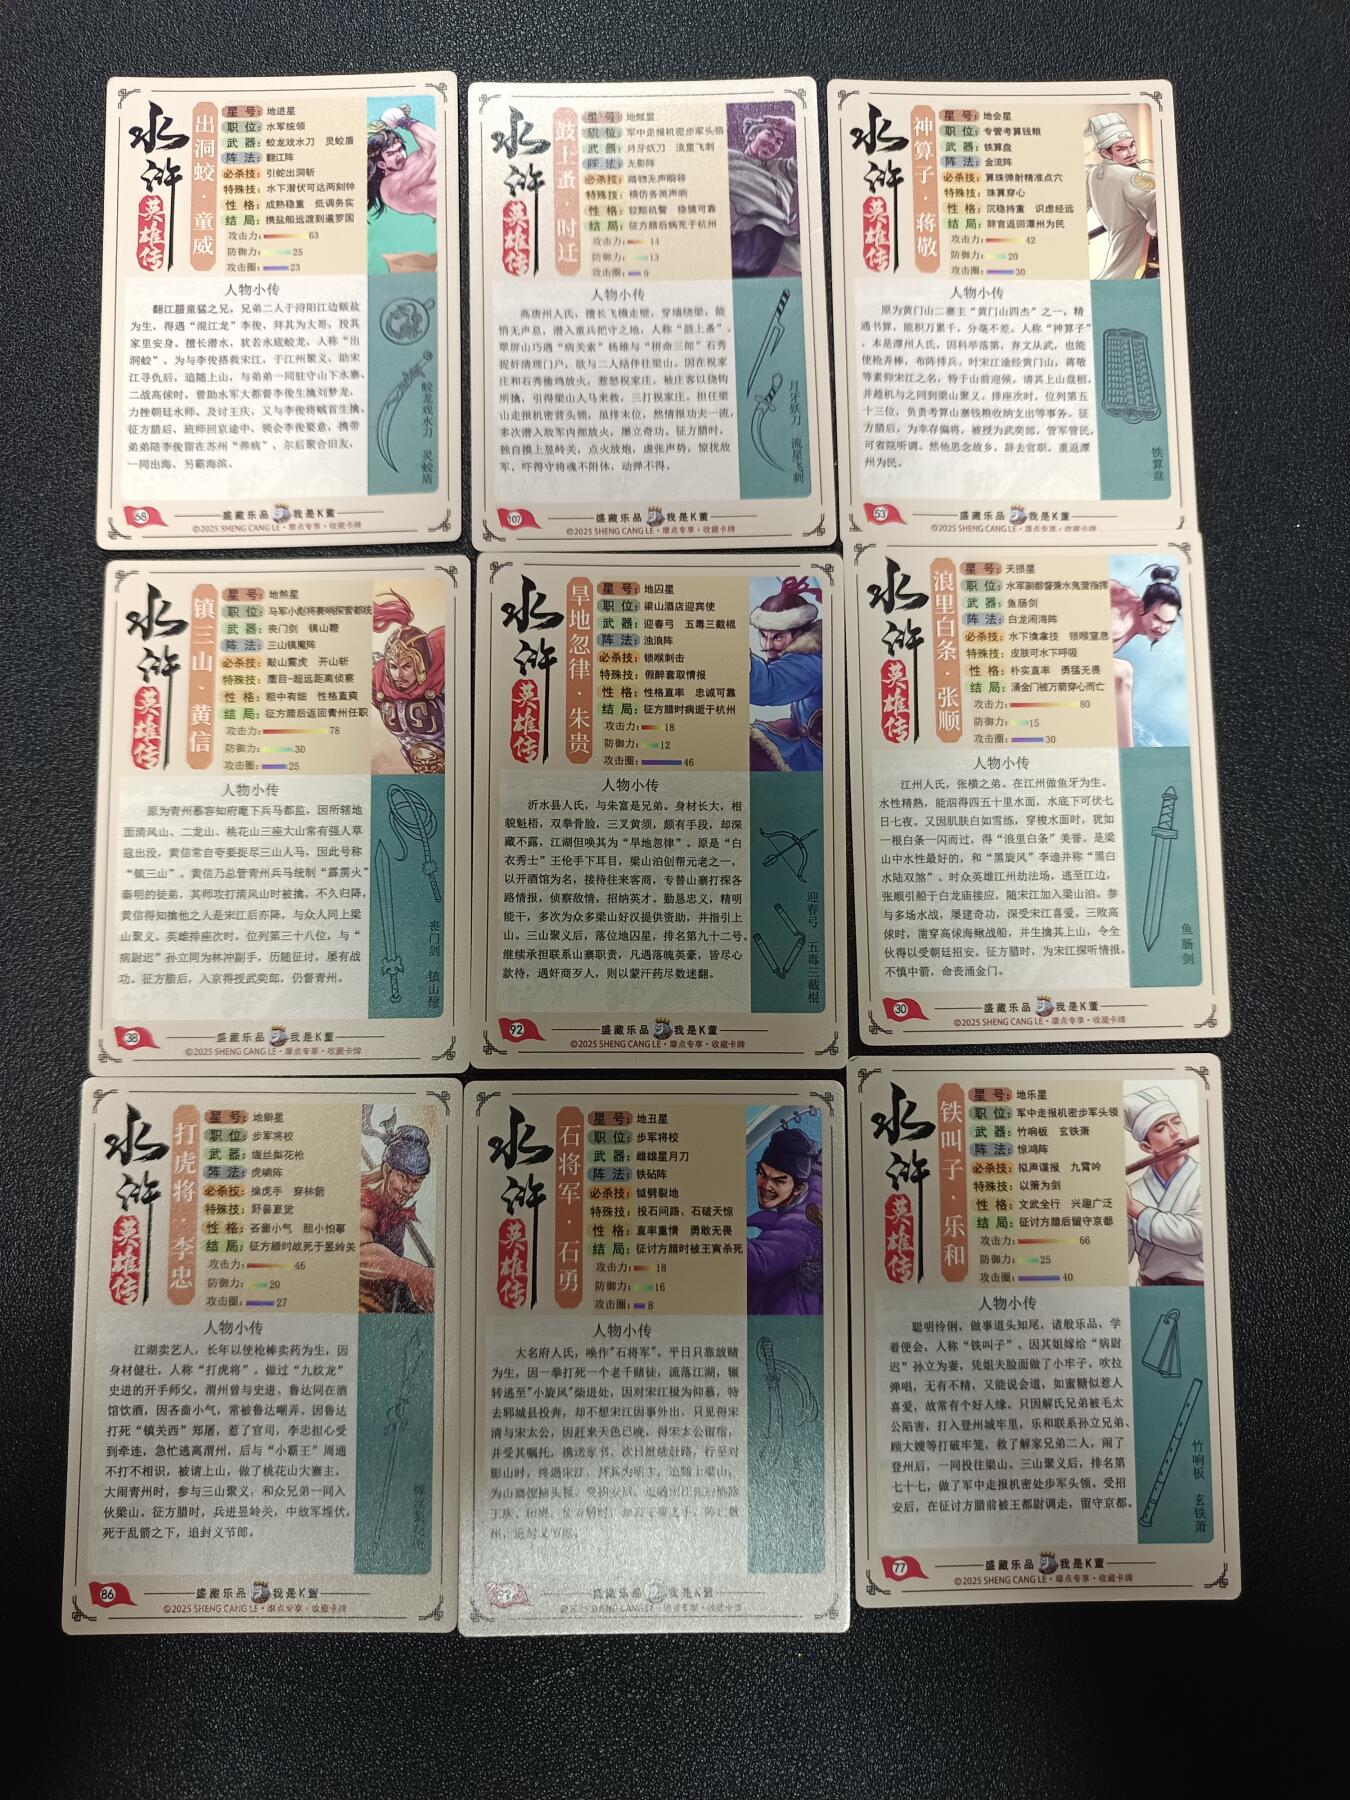 水浒英雄传
出洞蛟·童威
星号：地进星
职位：水军统领
武器：蛟龙戏水刀 灵蛟盾
阵法：翻江阵
必杀技：引蛇出洞斩
特殊技：水下潜伏可达两刻钟
性格：成熟稳重 低调务实
结局：携盐船远渡到暹罗国
攻击力：63
防御力：25
攻击圈：23
人物小传
翻江蜃童猛之兄，兄弟二人于浔阳江边贩盐
为生，得遇“混江龙”李俊，拜其为大哥，投其
家里安身。擅长潜水，犹若水底蛟龙，人称“出
洞蛟”。为与李俊搭救宋江，于江州聚义，助宋
江寻仇后，追随上山，与弟弟一同驻守山下水寨。
二战高俅时，曾助水军大都督李俊生擒刘梦龙，
力挫朝廷水师。及讨王庆，又与李俊将贼首生擒。
征方腊后，班师回京途中，领会李俊要意，携带
弟弟陪李俊留在苏州“养病”，尔后聚合旧友，
一同出海，另霸海滨。
蛟龙戏水刀 灵蛟盾
68
盛藏乐品 我是K董
©2025 SHENG CANG LE·摩点专享·收藏卡牌
水浒英雄传
鼓上蚤·时迁
星号：地贼星
职位：军中走报机密步军头领
武器：月牙妖刀 流星飞刺
阵法：无影阵
必杀技：踏物无声瞬移
特殊技：模仿各类声响
性格：狡黠机警 稳健可靠
结局：征方腊后病死于杭州
攻击力：14
防御力：13
攻击圈：9
人物小传
高唐州人氏，擅长飞檐走壁，穿墙绕梁，能
悄无声息，潜入重兵把守之地，人称“鼓上蚤”。
翠屏山巧遇“病关索”杨雄与“拼命三郎”石秀
捉奸清理门户，欲与二人结伴往梁山，因在祝家
庄和石秀偷鸡放火，惹怒祝家庄，被庄客以挠钩
所擒，引得梁山人马来救，三打祝家庄。担任梁
山走报机密营头领，虽排末位，然情报功夫一流，
多次潜入敌军内部放火，屡立奇功。征方腊时，
独自摸上昱岭关，点火放炮，虚张声势，惊扰敌
军，吓得守将魂不附体，动弹不得。
月牙妖刀 流星飞刺
107
盛藏乐品 我是K董
©2025 SHENG CANG LE·摩点专享·收藏卡牌
水浒英雄传
神算子·蒋敬
星号：地会星
职位：专管考算钱粮
武器：铁算盘
阵法：金流阵
必杀技：算珠弹射精准点穴
特殊技：珠算穿心
性格：沉稳持重 识虑经远
结局：辞官返回潭州为民
攻击力：42
防御力：20
攻击圈：30
人物小传
原为黄门山二寨主“黄门山四杰”之一，精
通书算，能积万累千，分毫不差。人称“神算子”
。本是潭州人氏，因科举落第，弃文从武，也能
使枪弄棒，布阵排兵。时宋江途经黄门山，蒋敬
等素仰宋江之名，特于山前迎候，请其上山盘桓，
并趁机与之同到梁山聚义。排座次时，位列第五
十三位，负责考算山寨钱粮收纳支出等事务。征
方腊后，为幸存偏将，被授为武奕郎，管军管民，
可省院听调。然他思念故乡，辞去官职，重返潭
州为民。
铁算盘
53
盛藏乐品 我是K董
©2025 SHENG CANG LE·摩点专享·收藏卡牌
水浒英雄传
镇三山·黄信
星号：地煞星
职位：马军小彪将兼哨探营都统
武器：丧门剑 镇山鞭
阵法：三山镇魔阵
必杀技：敲山震虎 开山斩
特殊技：鹰目-超远距离侦察
性格：粗中有细 性格直爽
结局：征方腊后返回青州任职
攻击力：78
防御力：30
攻击圈：25
人物小传
原为青州慕容知府麾下兵马都监，因所辖地
面清风山、二龙山、桃花山三座大山常有强人草
寇出没，黄信常自夸要捉尽三山人马，因此号称
“镇三山”。黄信乃总管青州兵马统制“霹雳火”
秦明的徒弟，其师攻打清风山时被擒，不久归降，
黄信得知擒他之人是宋江后亦降，与众人同上梁
山聚义。英雄排座次时，位列第三十八位，与“
病尉迟”孙立同为林冲副手，历随征讨，屡有战
功。征方腊后，入京得授武奕郎，仍督青州。
丧门剑 镇山鞭
38
盛藏乐品 我是K董
©2025 SHENG CANG LE·摩点专享·收藏卡牌
水浒英雄传
旱地忽律·朱贵
星号：地囚星
职位：梁山酒店迎宾使
武器：迎春弓 五毒三截棍
阵法：浊浪阵
必杀技：锁喉刺击
特殊技：假醉套取情报
性格：性格直率 忠诚可靠
结局：征方腊时病逝于杭州
攻击力：18
防御力：12
攻击圈：46
人物小传
沂水县人氏，与朱富是兄弟。身材长大，相
貌魁梧，双拳骨脸，三叉黄须，颇有手段，却深
藏不露，江湖但唤其为“旱地忽律”。原是“白
衣秀士”王伦手下耳目，梁山泊创帮元老之一，
以开酒馆为名，接待往来客商，专替山寨打探各
路情报，侦察敌情，招纳英才。勤恳忠义，精明
能干，多次为众多梁山好汉提供资助，并指引上
山。三山聚义后，落位地囚星，排名第九十二号。
继续承担联系山寨职责，凡遇落魄英豪，皆尽心
款待，遇奸商歹人，则以蒙汗药尽数迷翻。
迎春弓 五毒三截棍
92
盛藏乐品 我是K董
©2025 SHENG CANG LE·摩点专享·收藏卡牌
水浒英雄传
浪里白条·张顺
星号：天损星
职位：水军副都督兼水鬼营指挥
武器：鱼肠剑
阵法：白龙闹海阵
必杀技：水下擒拿技 锁喉窒息
特殊技：皮肤可水下呼吸
性格：朴实直率 勇猛无畏
结局：涌金门被万箭穿心而亡
攻击力：80
防御力：15
攻击圈：30
人物小传
江州人氏，张横之弟。在江州做鱼牙为生。
水性精熟，能泅得四五十里水面，水底下可伏七
日七夜。又因肌肤白如雪练，穿梭水面时，犹如
一根白条一闪而过，得“浪里白条”美誉。是梁
山中水性最好的，和“黑旋风”李逵并称“黑白
水陆双煞”。时众英雄江州劫法场，逃至江边，
张顺引船于白龙庙接应，随宋江加入梁山泊。参
与多场水战，屡建奇功，深受宋江喜爱。三败高
俅时，凿穿高俅海鳅战船，并生擒其上山，令全
伙得以受朝廷招安。征方腊时，为宋江探听情报，
不慎中箭，命丧涌金门。
鱼肠剑
30
盛藏乐品 我是K董
©2025 SHENG CANG LE·摩点专享·收藏卡牌
水浒英雄传
打虎将·李忠
星号：地僻星
职位：步军将校
武器：缠丝梨花枪
阵法：虎啸阵
必杀技：擒虎手 穿林箭
特殊技：野兽直觉
性格：吝啬小气 胆小怕事
结局：征方腊时战死于昱岭关
攻击力：46
防御力：20
攻击圈：27
人物小传
江湖卖艺人，长年以使枪棒卖药为生，因
身材健壮，人称“打虎将”。做过“九纹龙”
史进的开手师父，渭州曾与史进、鲁达同在酒
馆饮酒，因吝啬小气，常被鲁达嘲弄。因鲁达
打死“镇关西”郑屠，惹了官司，李忠担心受
到牵连，急忙逃离渭州，后与“小霸王”周通
不打不相识，被请上山，做了桃花山大寨主。
大闹青州时，参与三山聚义，和众兄弟一同入
伙梁山。征方腊时，兵进昱岭关，中敌军埋伏，
死于乱箭之下，追封义节郎。
86
盛藏乐品 我是K董
©2025 SHENG CANG LE·摩点专享·收藏卡牌
水浒英雄传
石将军·石勇
星号：地丑星
职位：步军将校
武器：雌雄星月刀
阵法：铁砧阵
必杀技：钺劈裂地
特殊技：投石问路、石破天惊
性格：直率重情 勇敢无畏
结局：征讨方腊时被王寅杀死
攻击力：18
防御力：16
攻击圈：8
人物小传
大名府人氏，唤作“石将军”。平日只靠放赌
为生，因一拳打死一个老千赌徒，流落江湖，辗
转逃至“小旋风”柴进处，因对宋江极为仰慕，特
去郓城县投奔，却不想宋江因事外出，只见得宋
清与宋太公，因赶来天色已晚，得宋太公留宿，
并受其嘱托，携送家书，次日继续赶路，行至对
影山时，终遇宋江，拜其为明主，追随上梁山，
盛藏乐品 我是K董
水浒英雄传
铁叫子·乐和
星号：地乐星
职位：军中走报机密步军头领
武器：竹响板 玄铁萧
阵法：惊鸿阵
必杀技：拟声谍报 九霄吟
特殊技：以箫为剑
性格：文武全行 兴趣广泛
结局：征讨方腊后留守京都
攻击力：66
防御力：25
攻击圈：40
人物小传
聪明伶俐，做事道头知尾，诸般乐品，学
着便会，人称“铁叫子”。因其姐嫁给“病尉
迟”孙立为妻，凭姐夫脸面做了小牢子。吹拉
弹唱，无有不精，又能说会道，如蜜糖似惹人
喜爱，故常有个好人缘。只因解氏兄弟被毛太
公陷害，打入登州城牢里，乐和联系孙立兄弟、
顾大嫂等打破牢笼，救了解家兄弟二人，闹了
登州后，一同投往梁山。三山聚义后，排名第
七十七，做了军中走报机密处步军头领。受招
安后，在征讨方腊前被王都尉调走，留守京都。
竹响板 玄铁萧
77
盛藏乐品 我是K董
©2025 SHENG CANG LE·摩点专享·收藏卡牌